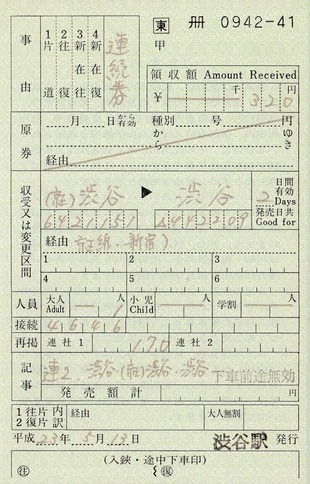 東 冊 0942-41
甲
事由
1片道 2往復 3新在往 4新在復
連続券
領収額 Amount Received
¥ 千 円
320
原券
月 日から有効 種別 号 円
から ゆき
経由
収受又は変更区間
(社)渋谷 ▶ 渋谷 2 日間有効 Days
発売日共 Good for
6421151 4442209
経由
新宿)
1 2 3
4 5 6
人員 大人 Adult 1 人 小児 Child 人 学割 人
接続 4646
再掲 連社1 170 連社2
記事 連2. 渋谷・(社)渋谷・渋谷 下車前途無効
発売額計
1往片 2復片 内訳 経由 大人無割
平成23年5月13日 渋谷駅 発行
(入鋏・途中下車印)
往 復